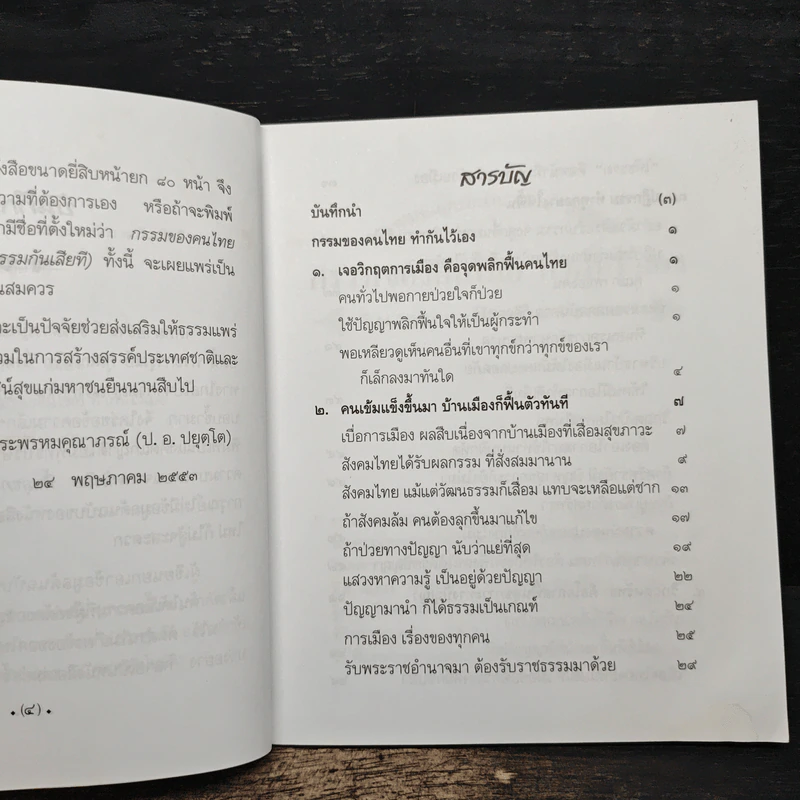 งสือขนาดยี่สิบหน้ายก ๘๐ หน้า จึง
วามที่ต้องการเอง หรือถ้าจะพิมพ์
ามีชื่อที่ตั้งใหม่ว่า กรรมของคนไทย
รรมกันเสียที) ทั้งนี้ จะเผยแพร่เป็น
นสมควร
ะเป็นปัจจัยช่วยส่งเสริมให้ธรรมแพร่
วมในการสร้างสรรค์ประเทศชาติและ
ชน์สุขแก่มหาชนยืนนานสืบไป
ระพรหมคุณาภรณ์ (ป. อ. ปยุตฺโต)
๒๔ พฤษภาคม ๒๕๕๓
(๔)
สารบัญ
บันทึกนำ (๓)
กรรมของคนไทย ทำกันไว้เอง ๑
๑. เจอวิกฤตการเมือง คือจุดพลิกฟื้นคนไทย ๑
คนทั่วไปพอกายป่วยใจก็ป่วย ๑
ใช้ปัญญาพลิกฟื้นใจให้เป็นผู้กระทำ ๑
พอเหลียวดูเห็นคนอื่นที่เขาทุกข์กว่าทุกข์ของเรา
ก็เล็กลงมาทันใด ๔
๒. คนเข้มแข็งขึ้นมา บ้านเมืองก็ฟื้นตัวทันที ๗
เบื่อการเมือง ผลสืบเนื่องจากบ้านเมืองที่เสื่อมสุขภาวะ ๗
สังคมไทยได้รับผลกรรม ที่สั่งสมมานาน ๙
สังคมไทย แม้แต่วัฒนธรรมก็เสื่อม แทบจะเหลือแต่ซาก ๑๓
ถ้าสังคมล้ม คนต้องลุกขึ้นมาแก้ไข ๑๗
ถ้าป่วยทางปัญญา นับว่าแย่ที่สุด ๑๙
แสวงหาความรู้ เป็นอยู่ด้วยปัญญา ๒๒
ปัญญามานำ ก็ได้ธรรมเป็นเกณฑ์ ๒๔
การเมือง เรื่องของทุกคน ๒๕
รับพระราชอำนาจมา ต้องรับราชธรรมมาด้วย ๒๙